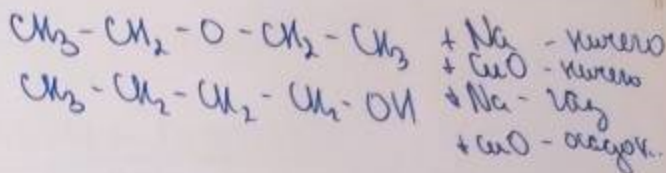 CH3-CH2-O-CH2-CH3 + Na - ничего
+ CuO - ничего
CH3-CH2-CH2-CH2-OH + Na - газ
+ CuO - осадок..